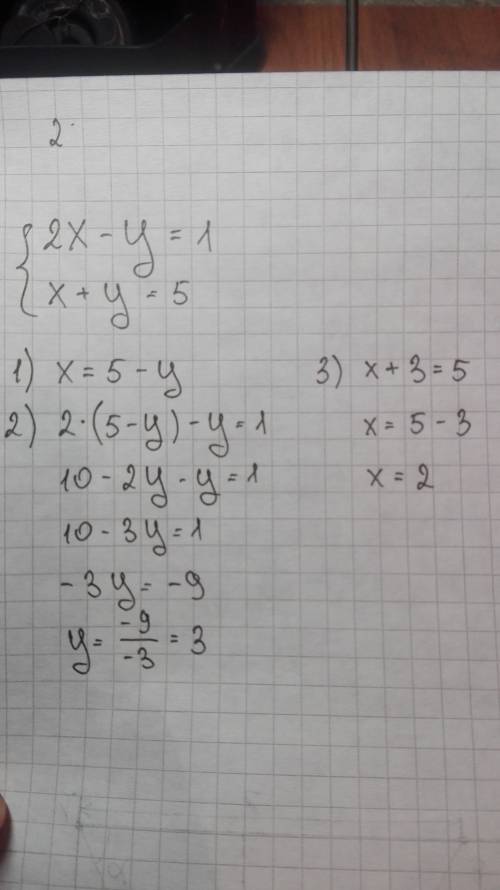 2.
{ 2x - y = 1
x + y = 5
1) x = 5 - y
2) 2·(5-y) - y = 1
10 - 2y - y = 1
10 - 3y = 1
- 3y = - 9
y = -9/-3 = 3
3) x + 3 = 5
x = 5 - 3
x = 2